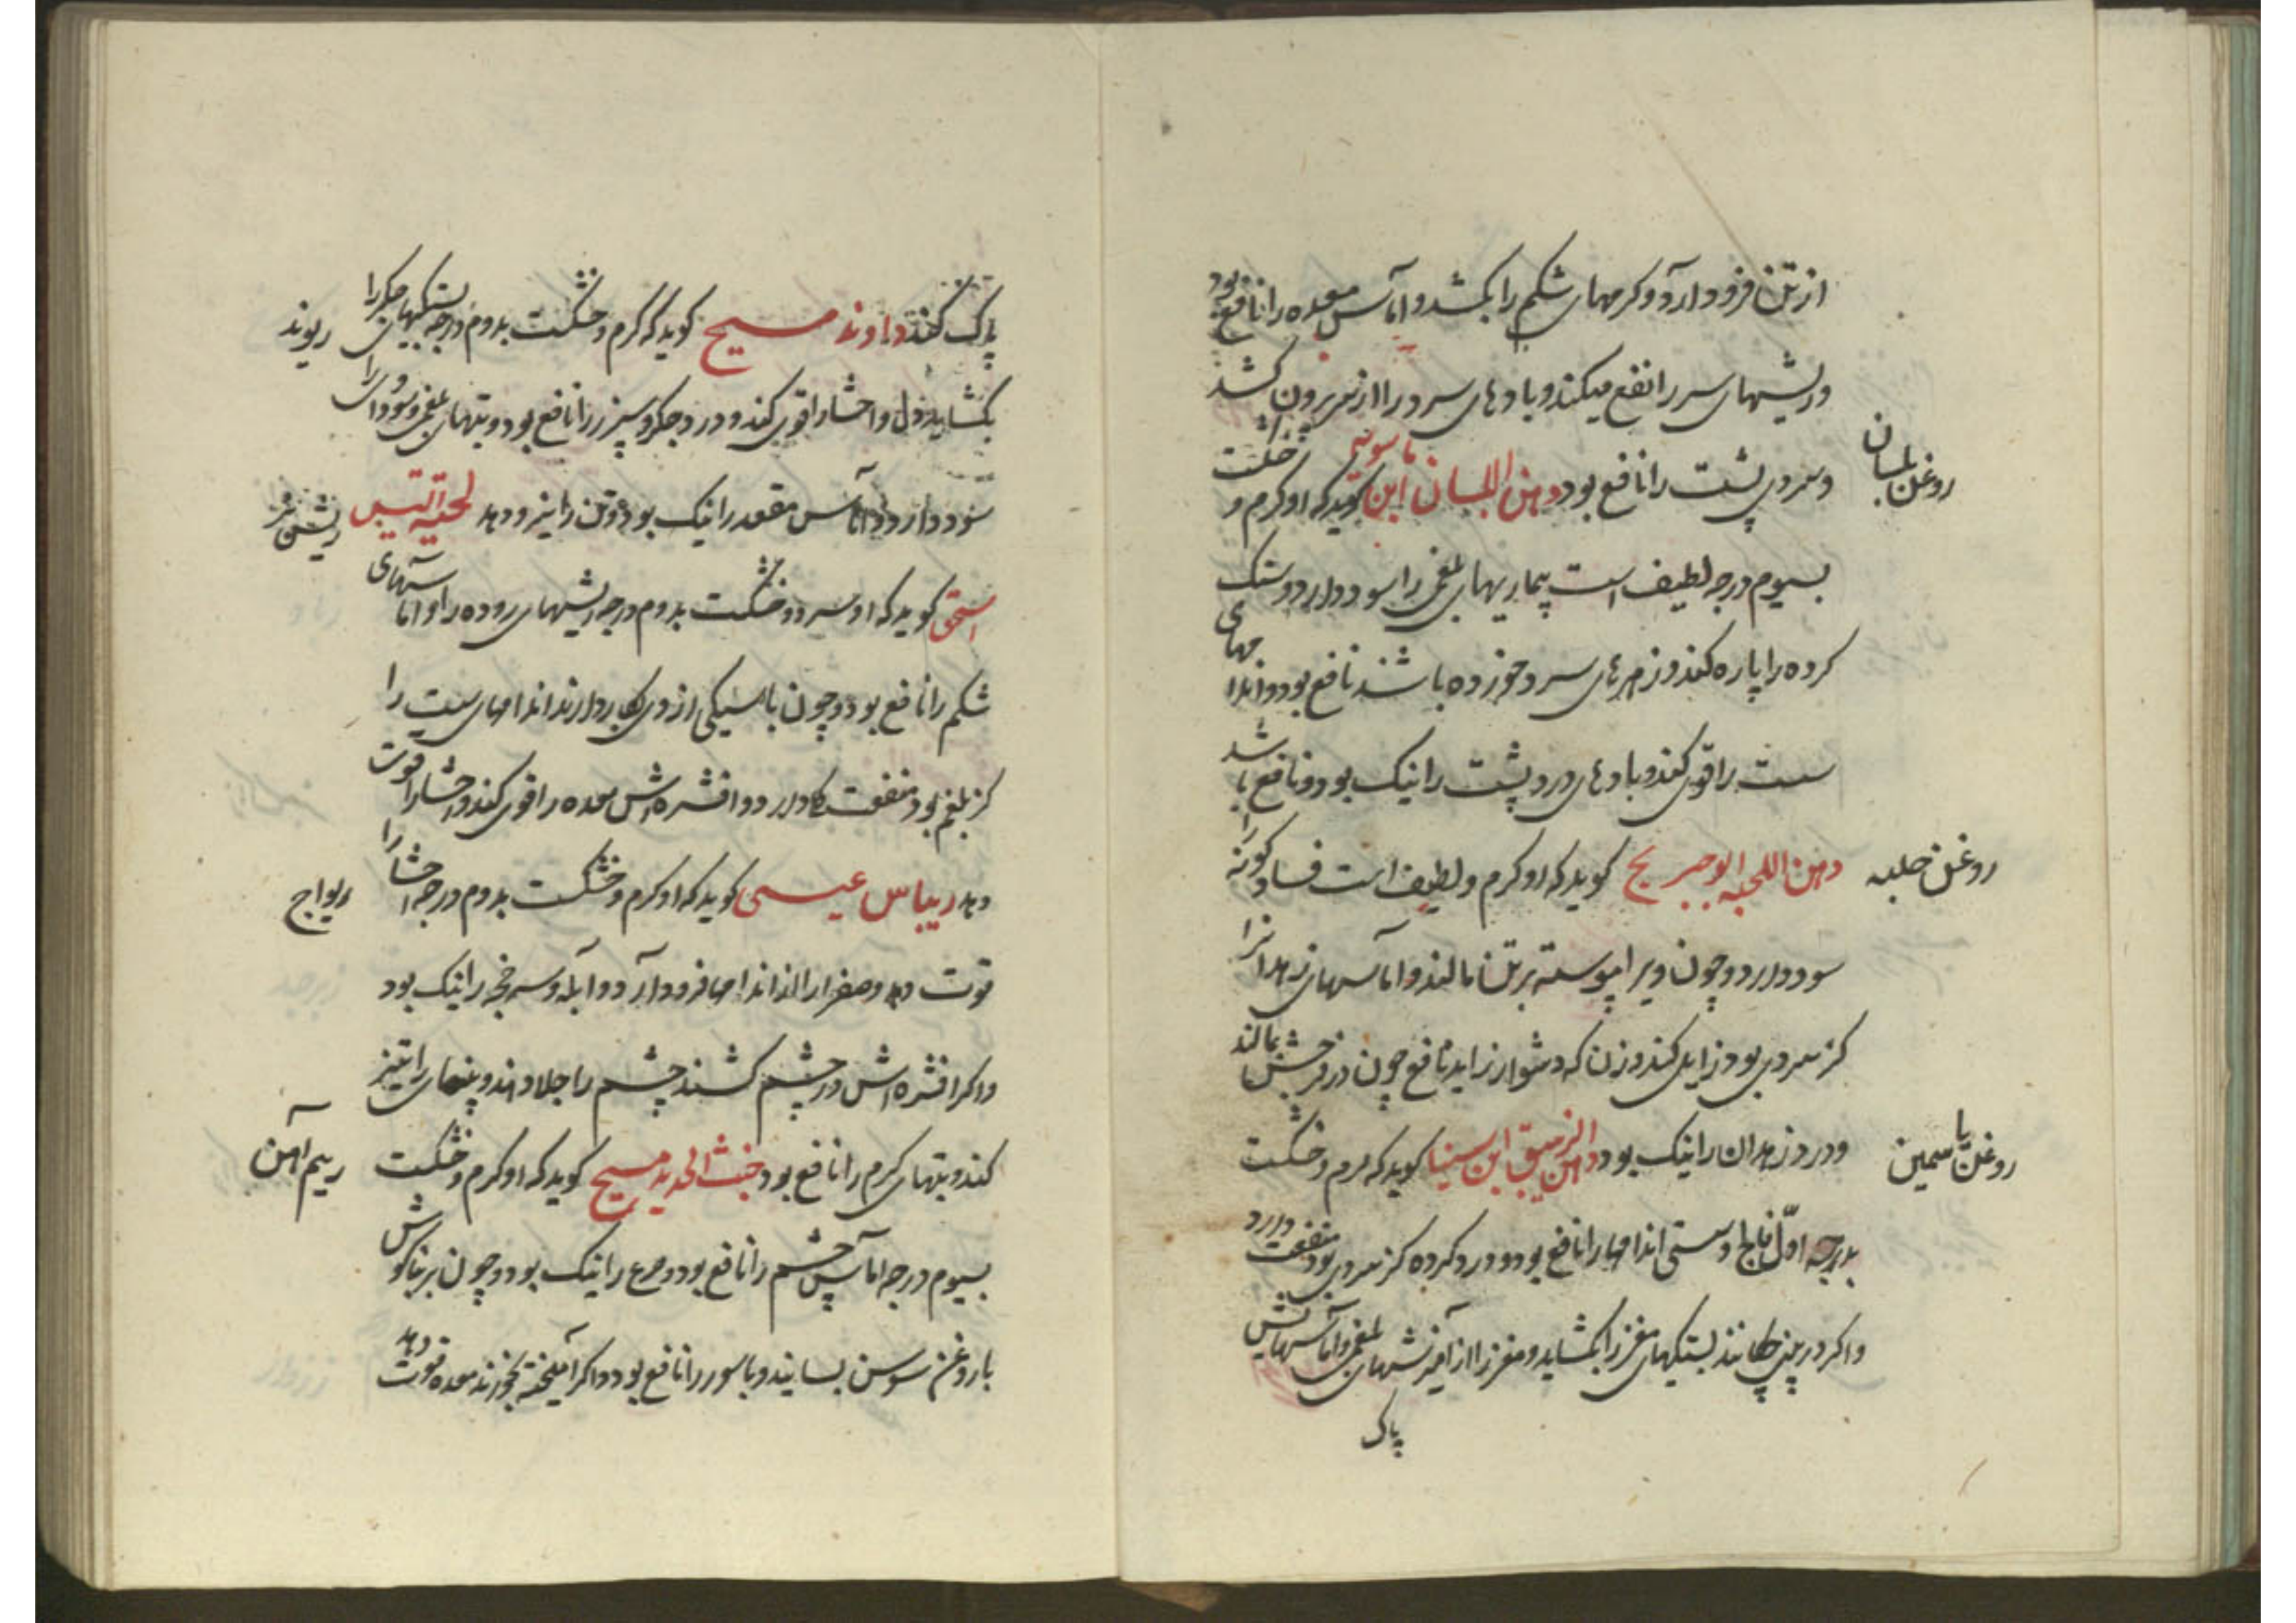 از تن فرود آرد و کرمهای شکم را بکشد و اماس معده را نافع بود
و ریشهای سر را نفع میکند و بادهای سرد را از سر برون کشد
روغن بلسان
و سردی پشت را نافع بود دهن البلسان ابن ماسویه کوید که او کرم و خشکست
بسیوم درجه لطیف است بیماریهای بلغمی را سود دارد و سنک
کرده را پاره کند و زهرهای سرد خورده باشند نافع بود و اندامهای
سست را قوی کند و بادهای درد پشت را نیک بود و نافع باشد
روغن حلبه
دهن اللحبه ابو جریج کوید که او کرم و لطیف است فساد کونه را
سود دارد و چون ویرا پیوسته بر تن مالند و اماسهای زهدانرا
کز سردی بود زایل کند و زن که دشوار زاید نافع چون در فرجش بمالند
روغن یاسمین
و درد زهدان را نیک بود دهن الزیبق ابن سینا کوید که کرم و خشکست
بدرجه اول فالج و سستی اندامها را نافع بود و درد کرده کز سردی بود منفعت دارد
و اکر در بینی چکانند بستکیهای مغز را بکشاید و مغز را از آمیزشهای بلغمی و آماسهایش
پاک
پاک کند راوند مسیح کوید که کرم و خشکست بدوم درجه بستکیهای جکر را
ریوند
بکشاید و دل و احشا را قوی کند و درد جکر و سپرز را نافع بود و تبهای بلغمی و سوداوی را
سود دارد و اماس مقعد را نیک بود و تن را نیرو دهد لحیة التیس
ریش بز
اسحق کوید که او سرد و خشکست بدوم درجه ریشهای روده را و اماسهای
شکم را نافع بود و چون با سیکی از وی بکار دارند اندامهای سست را
کز بلغم بود منفعت کند و افشره اش معده را قوی کند و احشا را قوت
دهد ریباس عیسی کوید که او کرم و خشکست بدوم درجه احشا را
ریواج
قوت دهد و صفرا را از اندامها فرود آرد و ابله و سرخجه را نیک بود
و اکر افشره اش در چشم کشند چشم را جلا دهد و بینایی را تیز
کند و تبهای کرم را نافع بود خبث الحدید مسیح کوید که او کرم و خشکست
ریم آهن
بسیوم درجه اماس چشم را نافع بود و صرع را نیک بود و چون بر بناکوش
با روغن سوسن بسایند و باسور را نافع بود و اکر آمیخته بخورند معده قوت دهد